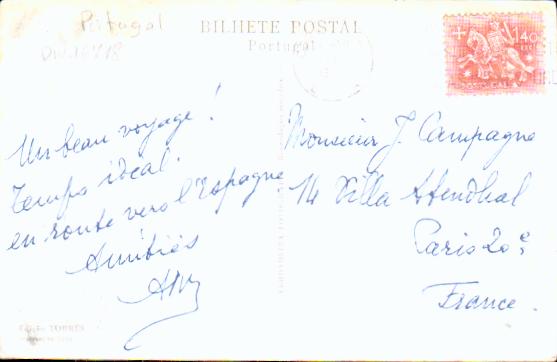 Portugal
BILHETE POSTAL
Portugal
1$40
Un beau voyage!
Temps idéal.
en route vers l'Espagne
Amitiés
Monsieur J. Campagne
14 Villa Stendhal
Paris 20e
France.